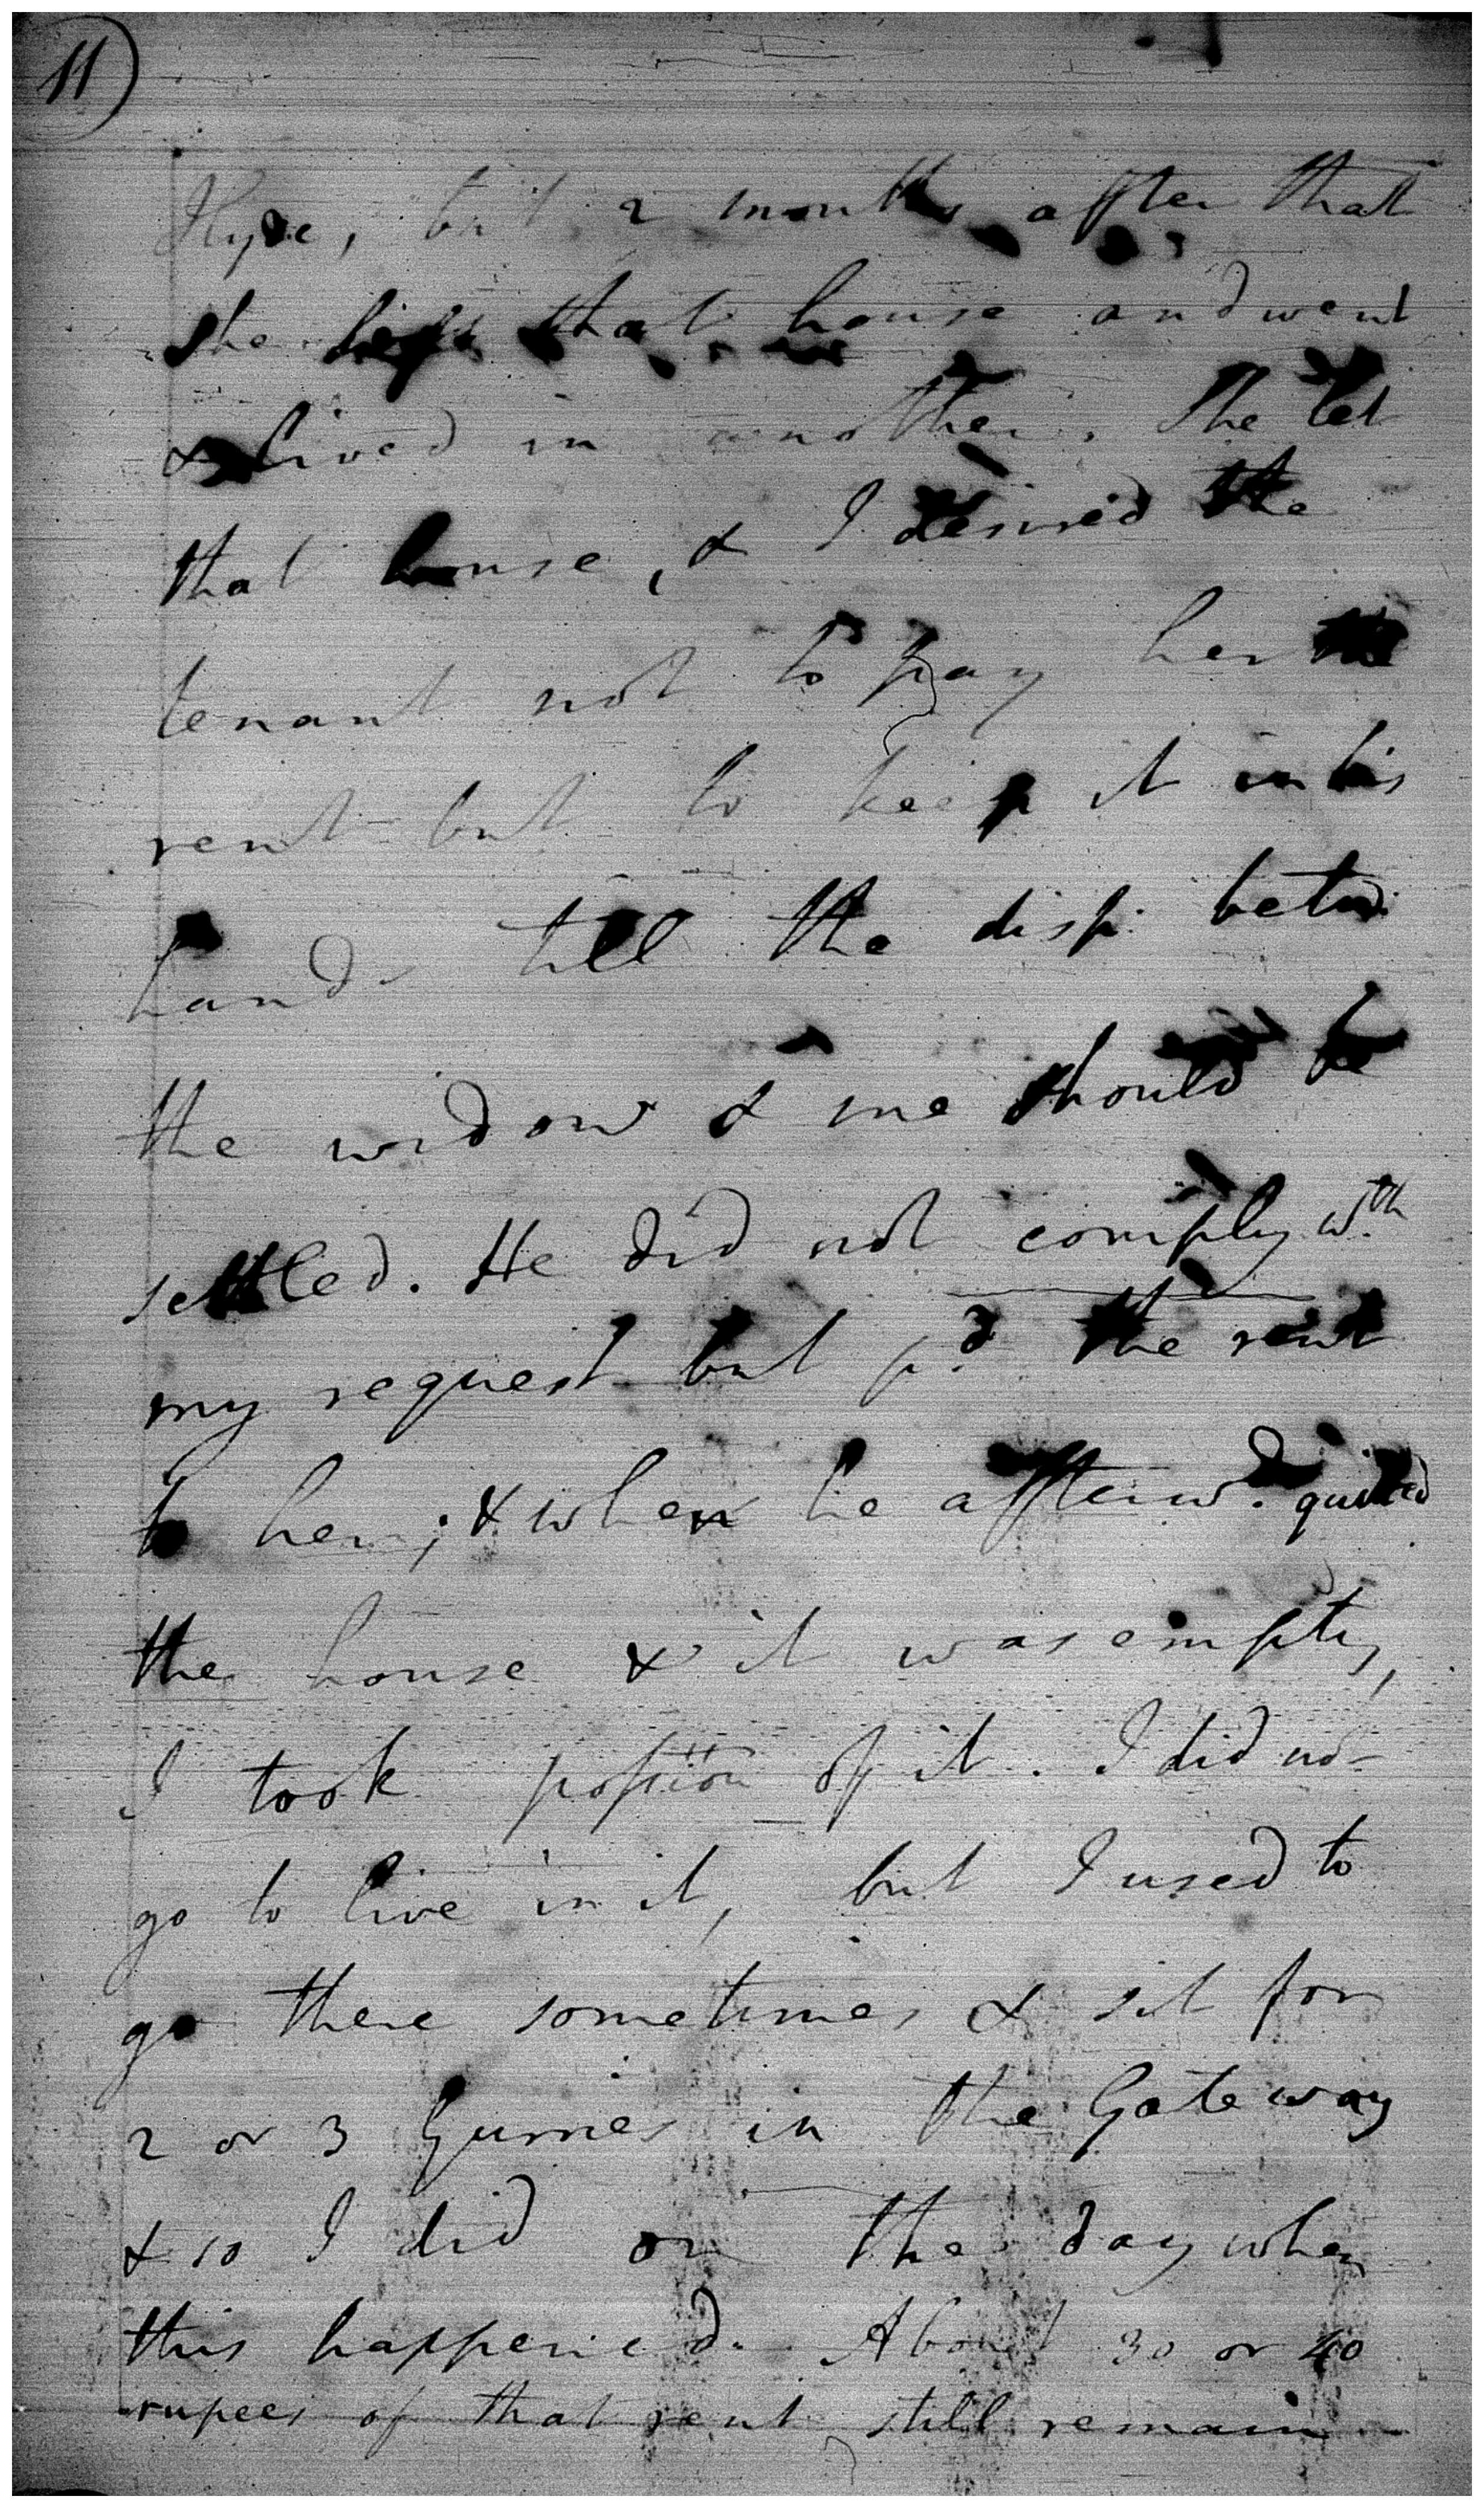 11
Hyde, but 2 months after that
she left that house and went
& lived in another. She let
that house, & I desired the
tenant not to pay her the
rent but to keep it in his
hands till the disp: betw:
the widow & me should be
settled. He did not comply wth
my request but pd the rent
to her; & when he afterwd. quitted
the house & it was empty,
I took possion of it. I did not
go to live in it, but I used to
go there sometimes & sit for
2 or 3 Gurries in the Gateway
& so I did on the day when
this happened. About 30 or 40
rupees of that rent still remain